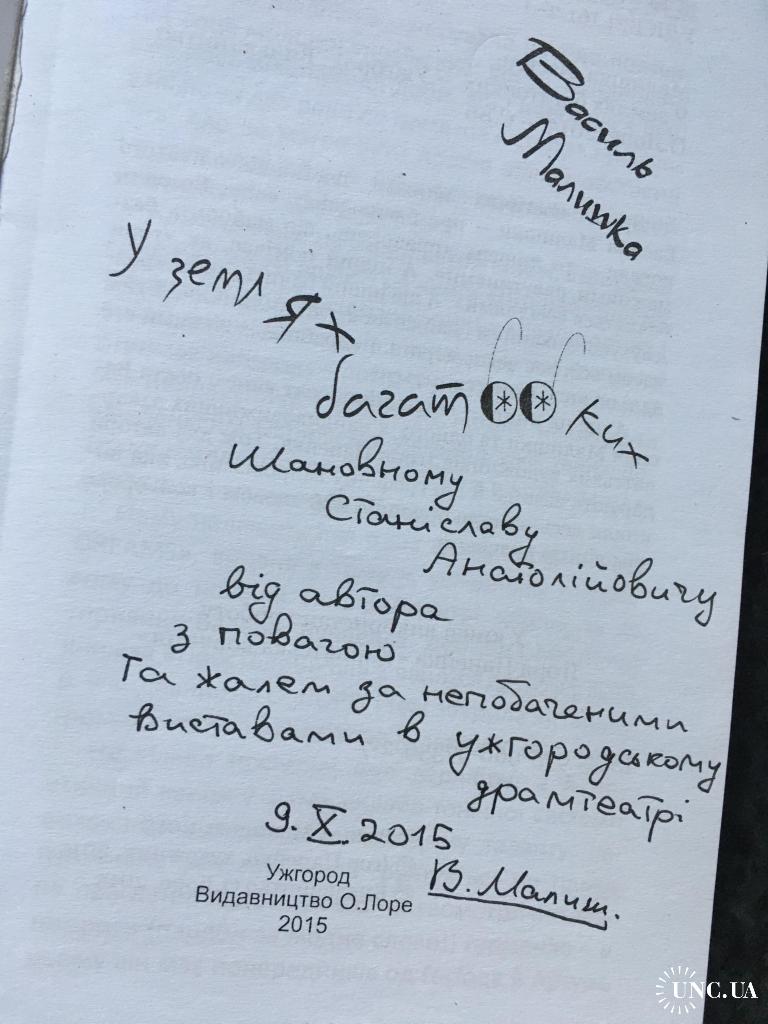 Василь
Малишка
У землях
багатооких
Шановному
Станіславу
Анатолійовичу
від автора
з повагою
та жалем за непобаченими
виставами в ужгородському
драмтеатрі
9.X.2015
В. Малиш.
Ужгород
Видавництво О.Лоре
2015
UNC.UA